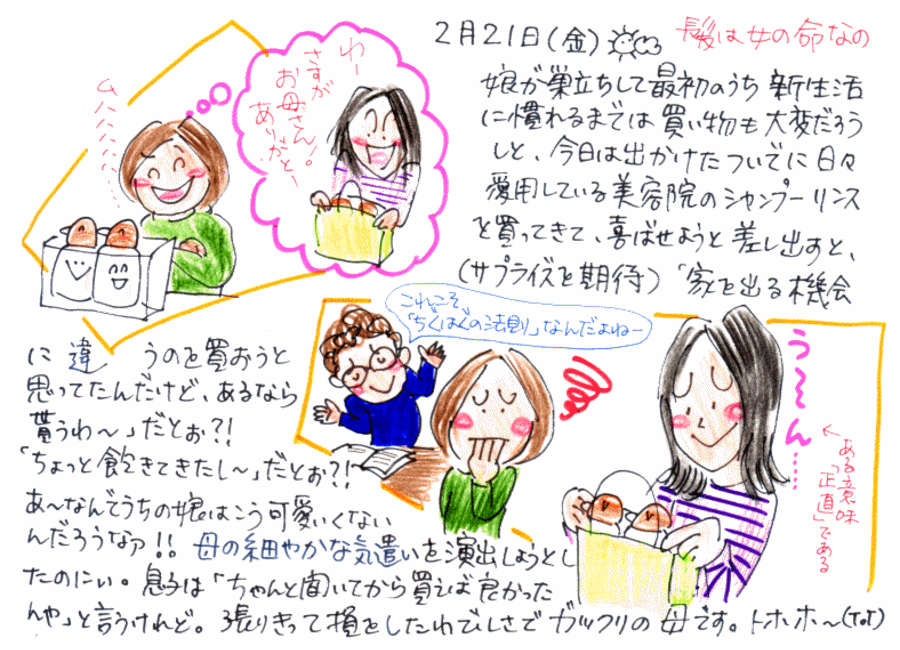 2月21日(金)
髪は女の命なの
娘が巣立ちして最初のうち新生活
に慣れるまでは買い物も大変だろう
しと、今日は出かけたついでに日々
愛用している美容院のシャンプーリンス
を買ってきて、喜ばせようと差し出すと、
(サプライズを期待)「家を出る機会
に違うのを買おうと
思ってたんだけど、あるなら
貰うわ〜」だとぉ?!
「ちょっと飽きてきたし〜」だとぉ?!
あ〜なんでうちの娘はこう可愛いくない
んだろうなァ!!母の細やかな気遣いを演出しようとし
たのにぃ。息子は「ちゃんと聞いてから買えば良かった
んや」と言うけれど。張りきって損をしたわびしさでガックリの母です。トホホ〜(ToT)
わー
さすが
お母さん!
ありがとー
ムハハハハ……
これこそ
「ちぐはぐの法則」なんだよねー
う〜ん……
ある意味
「正直」である